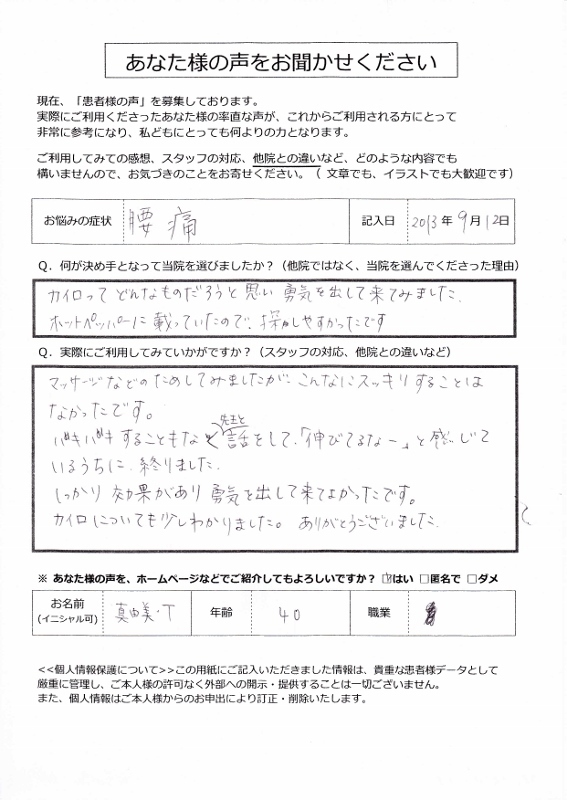 あなた様の声をお聞かせください
現在、「患者様の声」を募集しております。
実際にご利用くださったあなた様の率直な声が、これからご利用される方にとって
非常に参考になり、私どもにとっても何よりの力となります。
ご利用してみての感想、スタッフの対応、他院との違いなど、どのような内容でも
構いませんので、お気づきのことをお寄せください。（ 文章でも、イラストでも大歓迎です）
お悩みの症状 腰痛 記入日 2013年 9月12日
Q．何が決め手となって当院を選びましたか？（他院ではなく、当院を選んでくださった理由）
カイロって どんなものだろうと 思い 勇気を出して来てみました.
ホットペッパーに 載っていたので、探しやすかったです
Q．実際にご利用してみていかがですか？（スタッフの対応、他院との違いなど）
マッサージなどのためしてみましたが こんなにスッキリすることは
なかったです。
バキバキすることもなく 先生と 話をして、「伸びてるなー」と感じて
いるうちに、終りました.
しっかり 効果があり 勇気を出して来てよかったです。
カイロについても少しわかりました。 ありがとうございました.
※ あなた様の声を、ホームページなどでご紹介してもよろしいですか？ ☑はい □匿名で □ダメ
お名前 真由美・T 年齢 40 職業
(イニシャル可)
<<個人情報保護について>>この用紙にご記入いただきました情報は、貴重な患者様データとして
厳重に管理し、ご本人様の許可なく外部への開示・提供することは一切ございません。
また、個人情報はご本人様からのお申出により訂正・削除いたします。